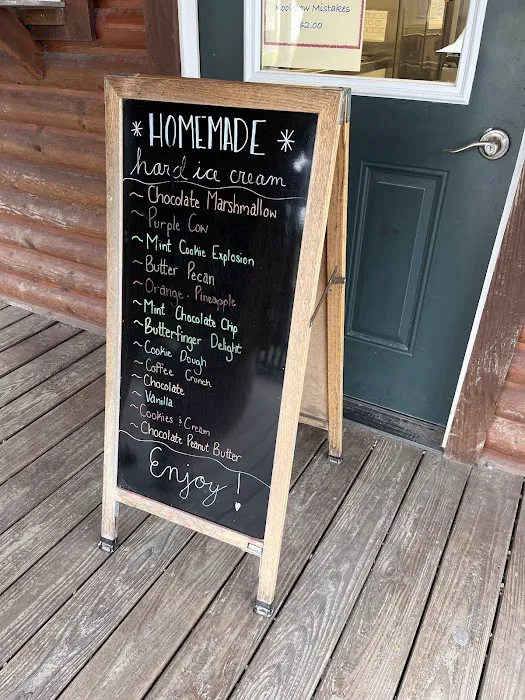 Kool Cow Mistakes
$2.00
* HOMEMADE *
hard ice cream
~ Chocolate Marshmallow
~ Purple Cow
~ Mint Cookie Explosion
~ Butter Pecan
~ Orange. Pineapple
~ Mint Chocolate Chip
~ Butterfinger Delight
~ Cookie Dough
~ Coffee Crunch
~ Chocolate
~ Vanilla
~ Cookies & Cream
~ Chocolate Peanut Butter
Enjoy!